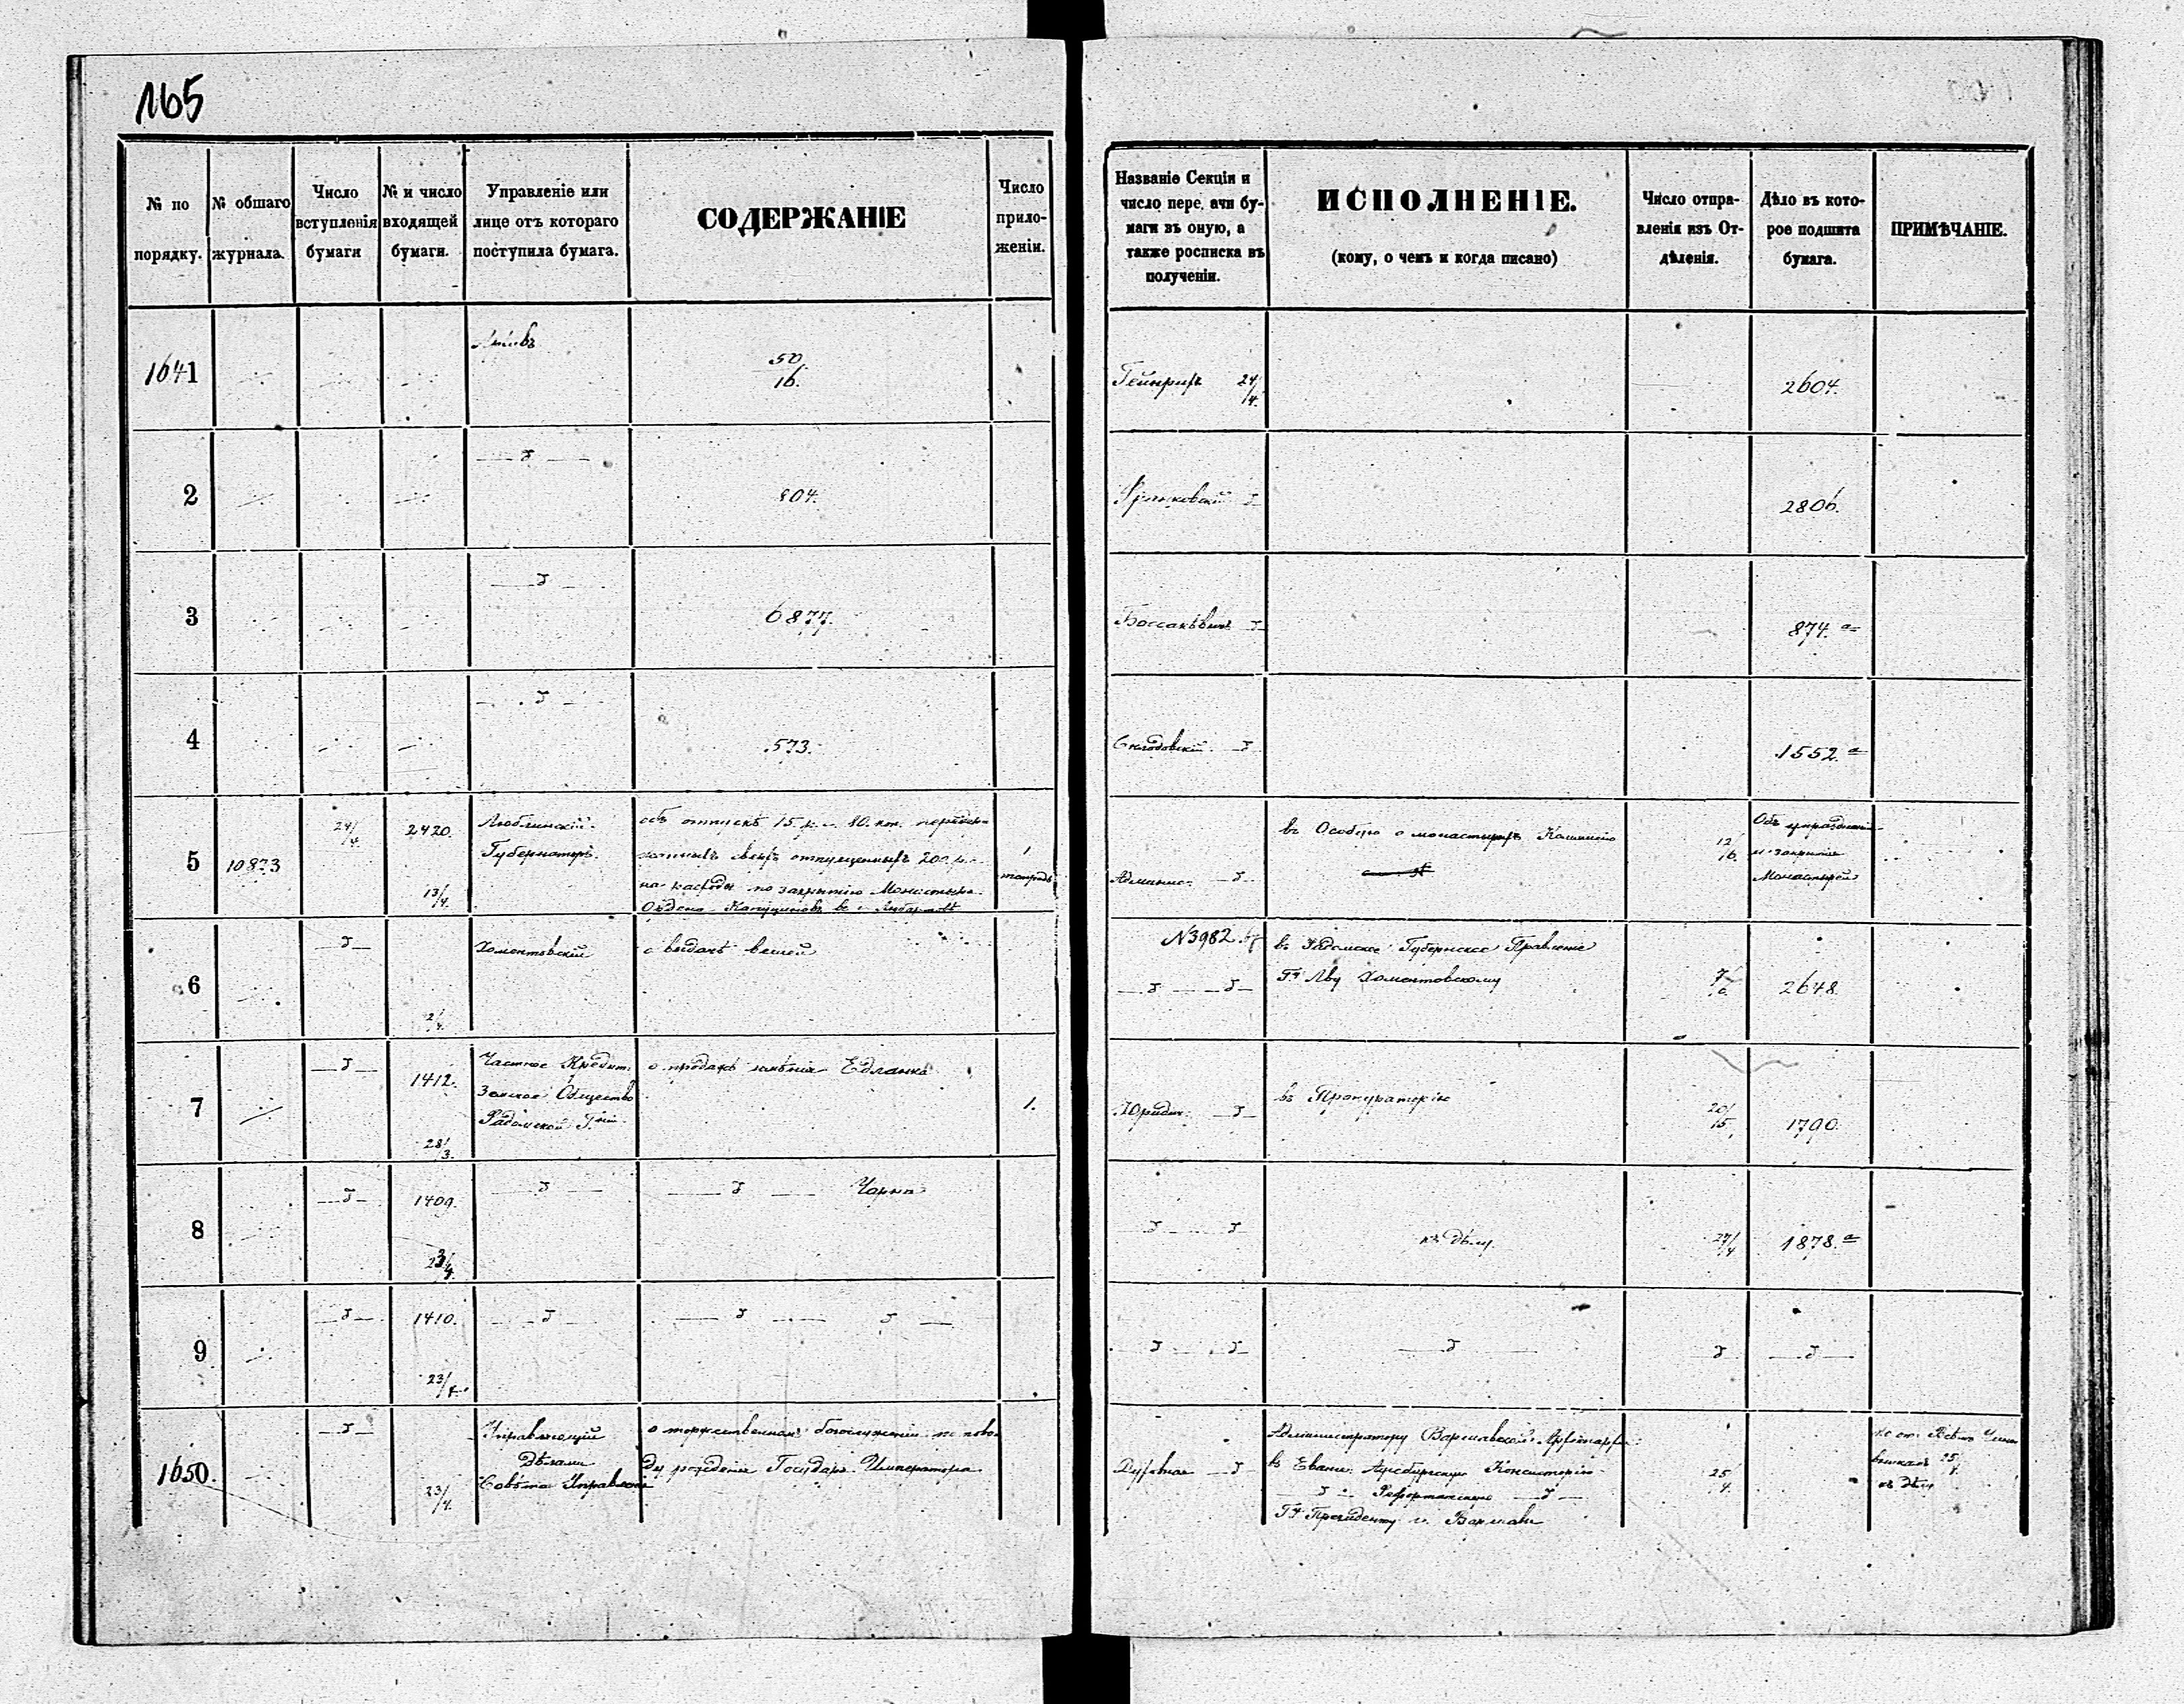 165
№ по порядку.
№ общаго журнала.
Число вступленія бумаги
№ и число входящей бумаги.
Управленіе или лице отъ котораго поступила бумага.
СОДЕРЖАНІЕ
Число прило-женіи.
Названіе Секціи и число пере. ачи бу-маги въ оную, а также росписка въ полученіи.
ИСПОЛНЕНІЕ.
(кому, о чемъ и когда писано)
Число отпра-вленія изъ От-дѣленія.
Дѣло въ кото-рое подшита бумага.
ПРИМѢЧАНІЕ.
1641
50
16.
Гейнрихъ 24/4.
2604.
2
804.
2806.
3
6877.
874. а
4
573.
Склодовскій
1552. а
5
10873
24/4
2420.
13/4.
Люблинскій
Губернаторъ.
объ отпускѣ 15 р. 80. коп.
отпущенныхъ 200 р.
на расходы по закрытію Монастыря
Ордена Капуциновъ въ г. Любартовѣ
1
тетрадь
Админис.
въ Особую о монастыряхъ Коммисію
12/16.
Объ упраздненіи
и закрытіи
Монастырей
6
2/4.
Хоментовскій
о выдачѣ вещей
№3982
въ Радомское Губернское Правленіе
Гну Льву Хоментовскому
7/6.
2648.
7
1412.
28/3.
Частное Кредит.
Земское Общество
Радомской Гніи
о продажѣ имѣнія Едланка
1.
Юридич.
въ Прокураторію
20/15
1790.
8
1409.
23/4.
Чарна
къ дѣлу.
27/4
1878. а
9
1410.
23/4.
1650.
23/4.
Управляющій
Дѣлами
Совѣта Управленія
о торжественномъ богослуженіи по пово-
ду рожденія Государя Императора
Духовная
Администратору Варшавской Архіепархіи
въ Еванг. Аугсбургскую Консисторію
Реформатскую
Гну Президенту г. Варшавы
25/4.
25/4.
къ дѣлу